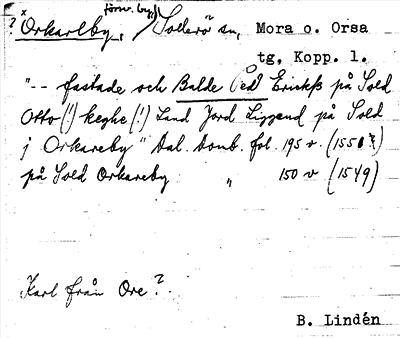 förm. by,
? × Orkarlby, Solerö sn, Mora o. Orsa
tg. Kopp. l.
"-- fastade och Balde Ped Erickß på Sold
Otto (!) keghe (!) Land Jord Liggend på Sold
j Orkareby" Dal. Domb. fol. 195 v. (1550?)
på Sold Orkareby " 150 v (1549)
Karl från Ore?.
B. Lindén